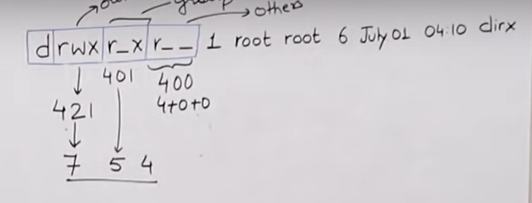 others
drwx r_x r__ 1 root root 6 July 01 04:10 dirx
401 400
421 4+0+0
7 5 4